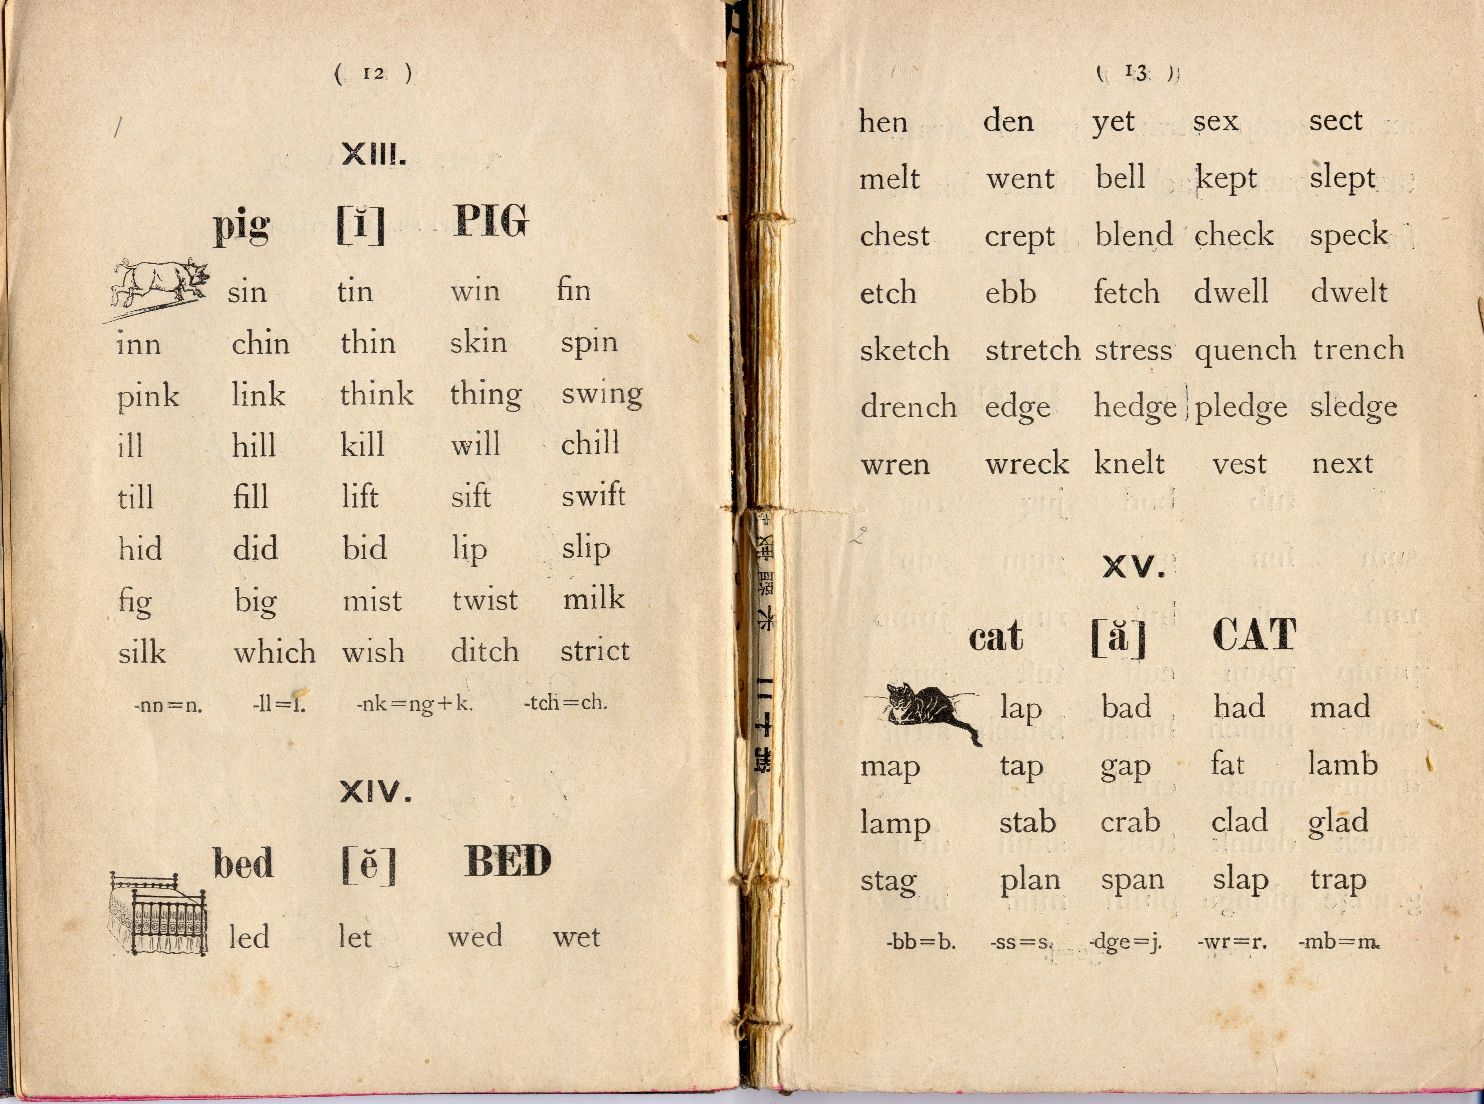 ( 12 )
XIII.
pig [ĭ] PIG
sin tin win fin
inn chin thin skin spin
pink link think thing swing
ill hill kill will chill
till fill lift sift swift
hid did bid lip slip
fig big mist twist milk
silk which wish ditch strict
-nn=n. -ll=l. -nk=ng+k. -tch=ch.
XIV.
bed [ĕ] BED
led let wed wet
( 13 )
hen den yet sex sect
melt went bell kept slept
chest crept blend check speck
etch ebb fetch dwell dwelt
sketch stretch stress quench trench
drench edge hedge pledge sledge
wren wreck knelt vest next
2
XV.
cat [ă] CAT
lap bad had mad
map tap gap fat lamb
lamp stab crab clad glad
stag plan span slap trap
-bb=b. -ss=s. -dge=j. -wr=r. -mb=m.